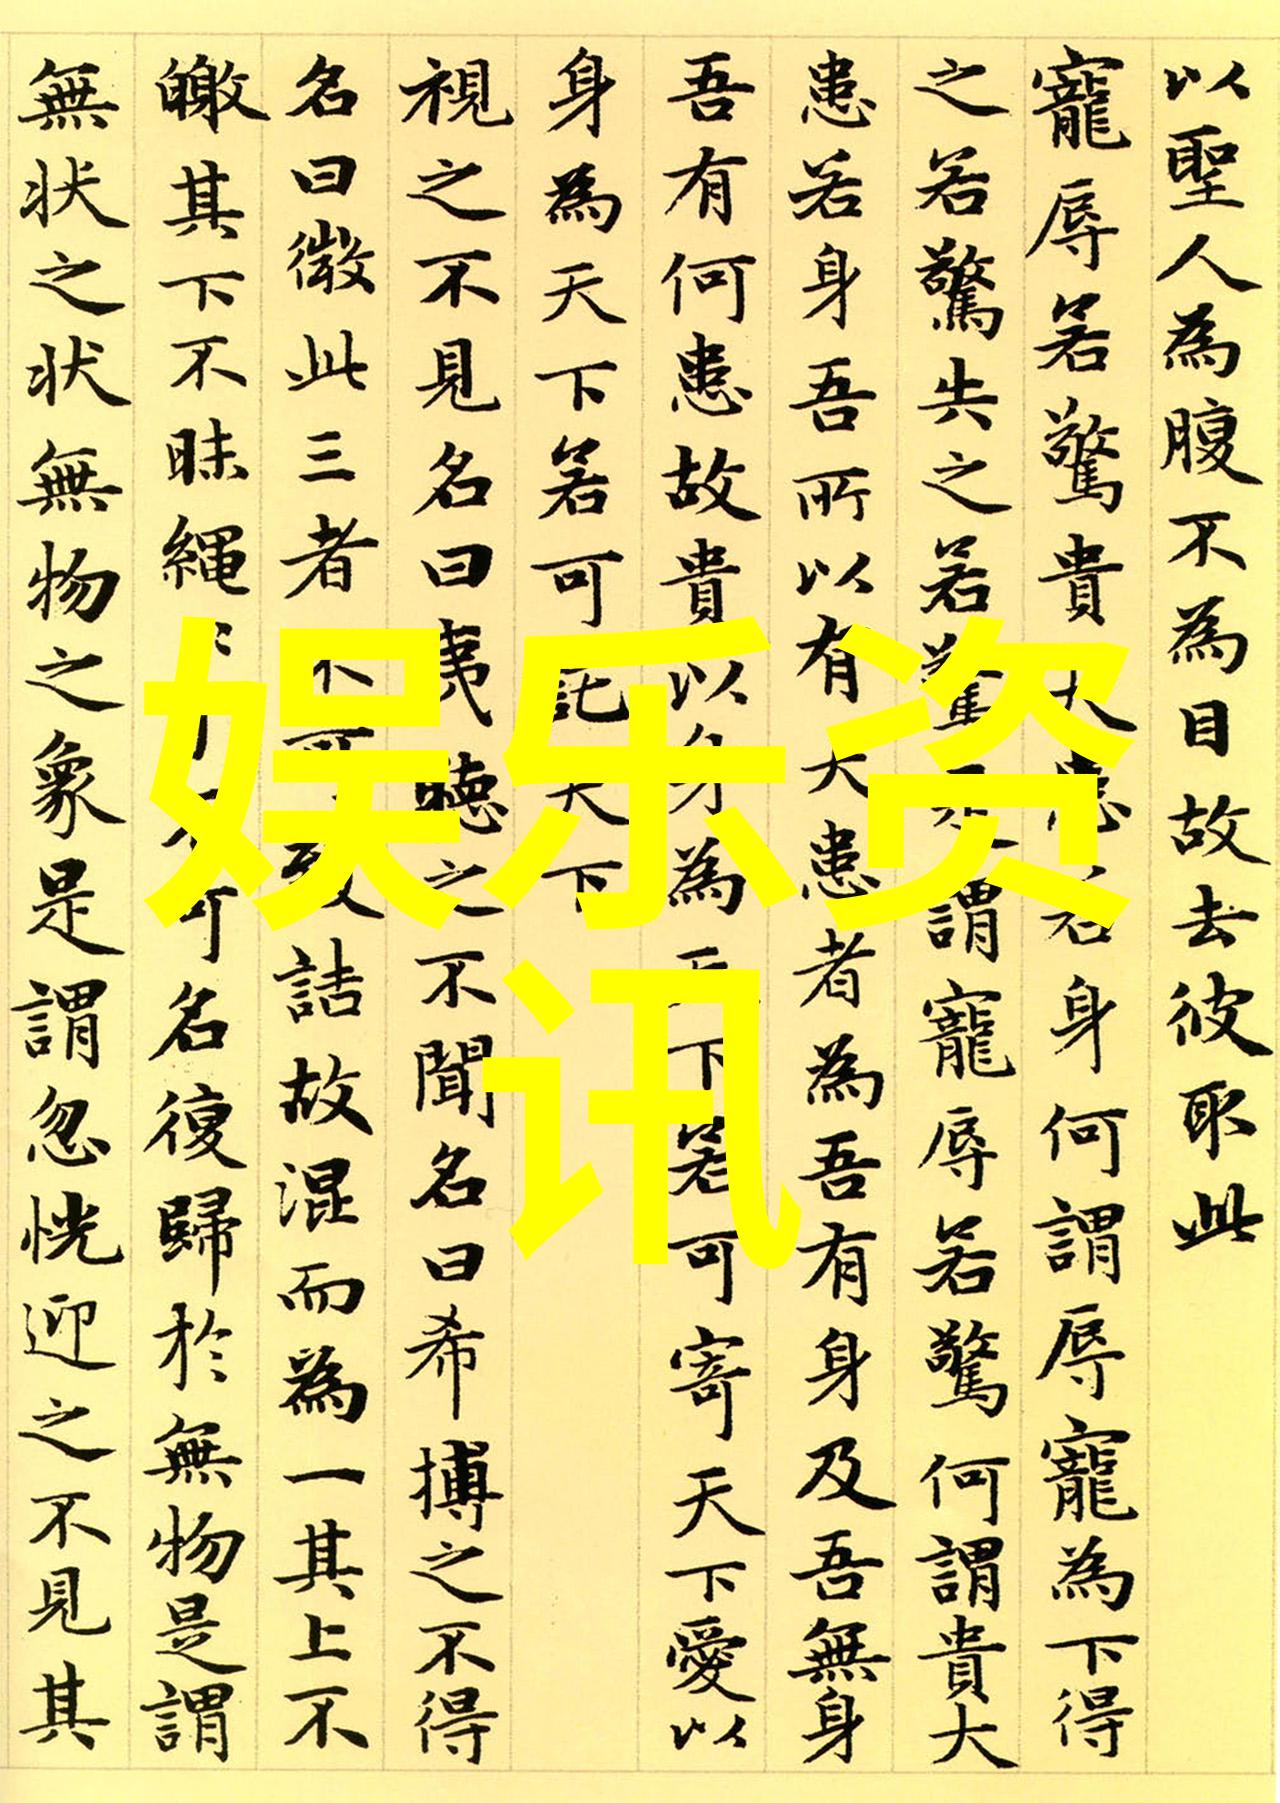 以聖人為腹不為目故去彼取此
寵辱若驚貴大患若身何謂辱寵為下得
之若驚失之若驚是謂寵辱若驚何謂貴大
患若身吾所以有大患者為吾有身及吾無身
吾有何患故貴以身為天下若可寄天下愛以
身為天下若可託天下
視之不見名曰夷聽之不聞名曰希搏之不得
名曰微此三者不可致詰故混而為一其上不
皦其下不昧繩〻不可名復歸於無物是謂
無状之状無物之象是謂忽恍迎之不見其
娱乐资
讯